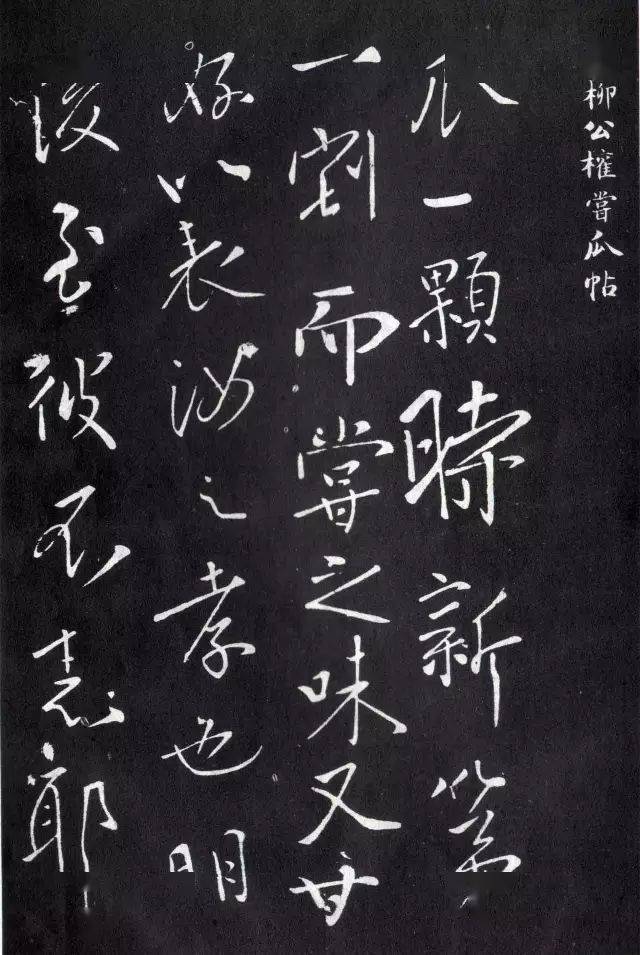 柳公權嘗瓜帖
瓜一顆時新第
一割而嘗之味又甘
好以表汝之孝也明
後至彼不耶